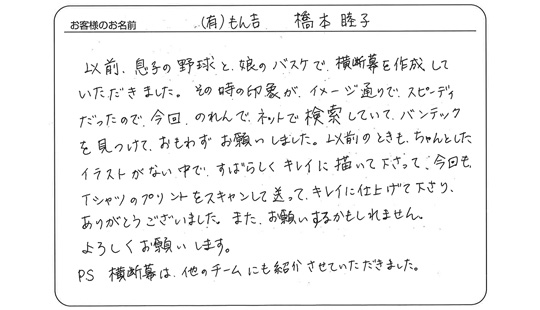 お客様のお名前 (有)もん吉 橋本睦子
以前、息子の野球と、娘のバスケで、横断幕を作成して
いただきました。その時の印象が、イメージ通りで、スピーディ
だったので、今回、のれんで、ネットで検索していて、バンテック
を見つけて、おもわずお願いしました。以前のときも、ちゃんとした
イラストがない中で、すばらしくキレイに描いて下さって、今回も、
Tシャツのプリントをスキャンして送って、キレイに仕上げて下さり、
ありがとうございました。また、お願いするかもしれません。
よろしくお願いします。
PS 横断幕は、他のチームにも紹介させていただきました。